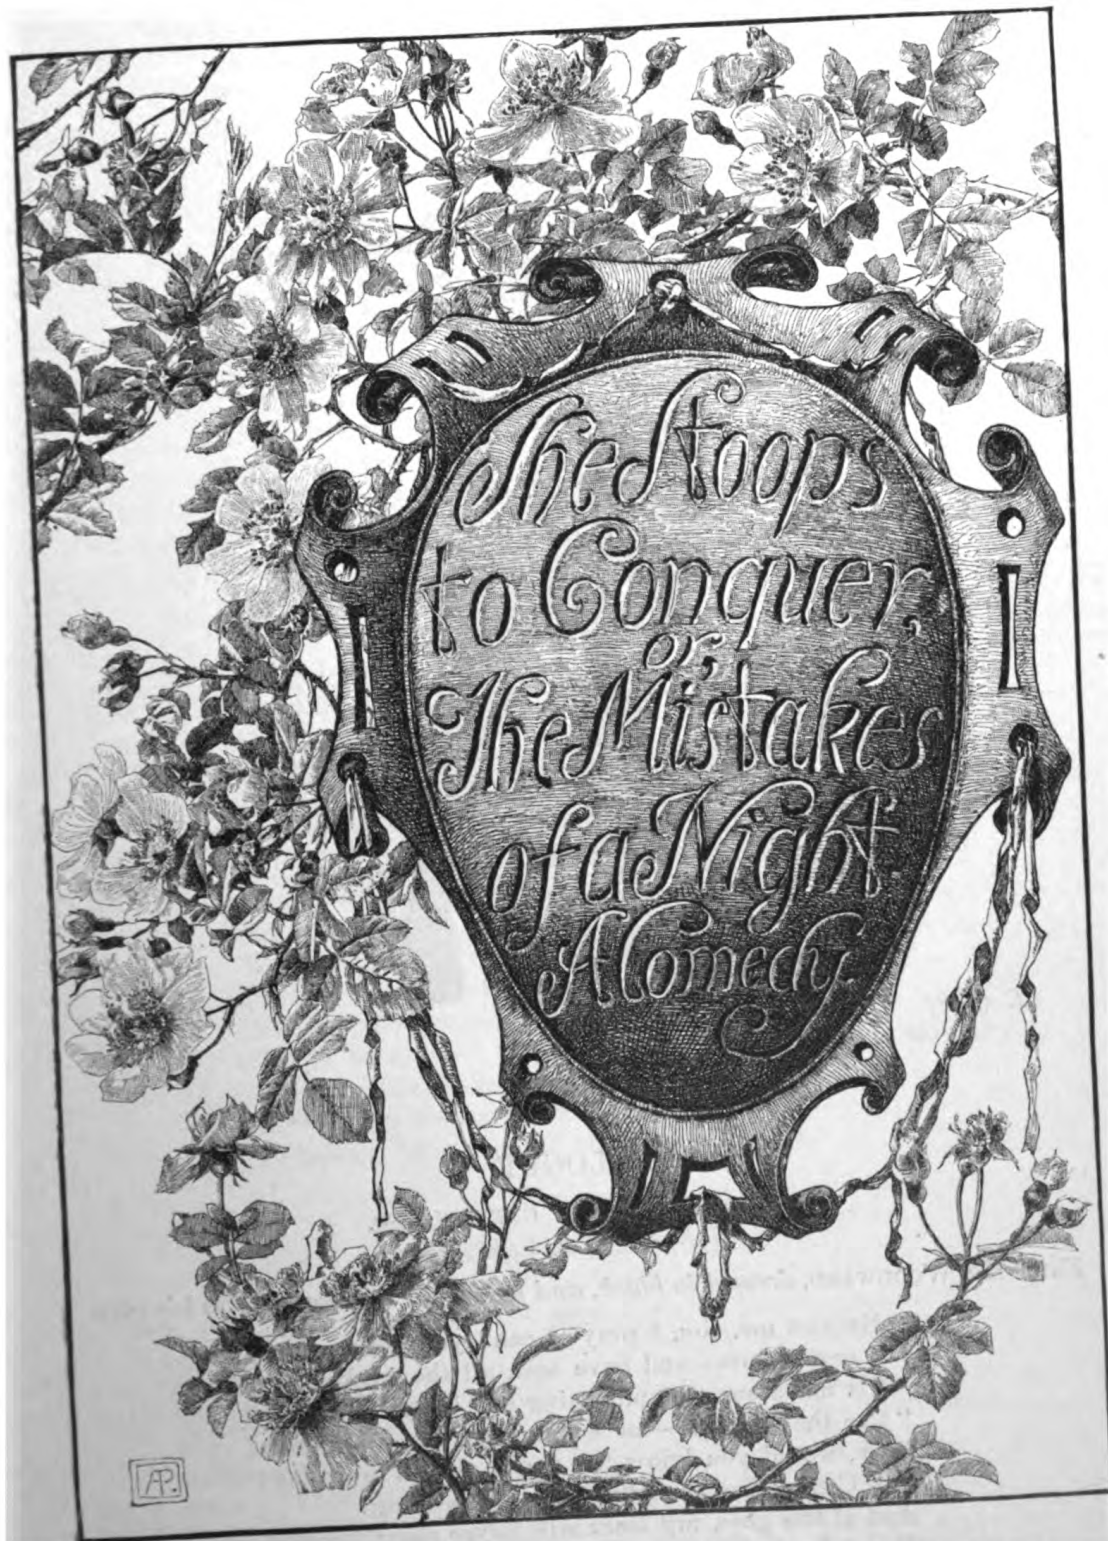 She Stoops
to Conquer,
or,
The Mistakes
of a Night.
A Comedy.
AP.